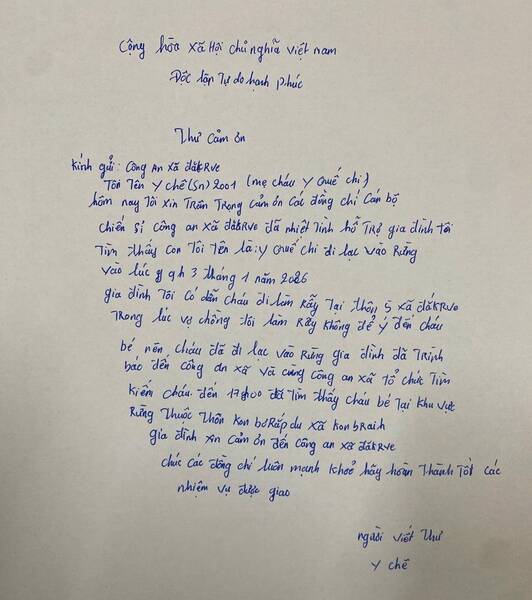 Cộng hòa xã Hội chủ nghĩa việt nam
Đốc lập Tự do hạnh phúc
Thư cảm ơn
Kính gửi: Công An xã đăkRve
Tôi Tên Y chê (Sn) 2001 (mẹ cháu Y Quế chi)
hôm nay Tôi xin Trân Trọng cảm ơn các đồng chí Cán bộ
chiến sĩ Công an xã đăkRve đã nhiệt Tình hỗ Trợ gia đình tôi
Tìm thấy Con Tôi Tên là: y Quế chi đi lạc vào Rừng
vào lúc 9h 3 tháng 1 năm 2026
gia đình Tôi có dẫn cháu đi làm Rẫy Tại thôn 5 xã đăkRve
Trong lúc vợ chồng tôi làm Rẫy không để ý đến cháu
bé nên, cháu đã đi lạc vào Rừng gia đình đã Trình
báo đến công an xã và cùng công an xã tổ chức Tìm
kiếm cháu. đến 17h00 đã Tìm thấy cháu bé Tại khu vực
Rừng Thuộc Thôn Kon bơRáp du xã Kon bRaih
gia đình xin cảm ơn đến công an xã đăkRve
chúc các đồng chí luôn mạnh khoẻ hãy hoàn Thành Tốt các
nhiệm vụ được giao
người viết Thư
Y chê